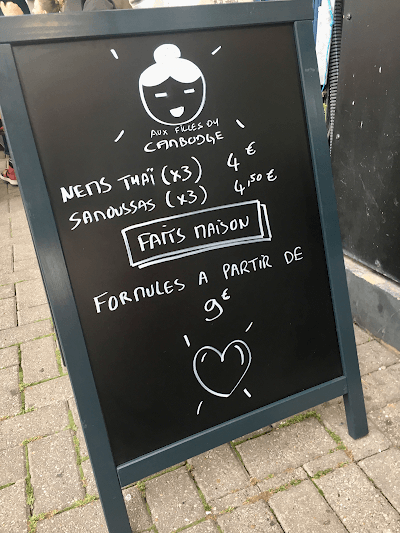 AUX FILLES DU
CAMBODGE
NEMS THAÏ (x3) 4 €
SAMOUSSAS (x3) 4,50 €
FAITS MAISON
FORMULES A PARTIR DE
9€